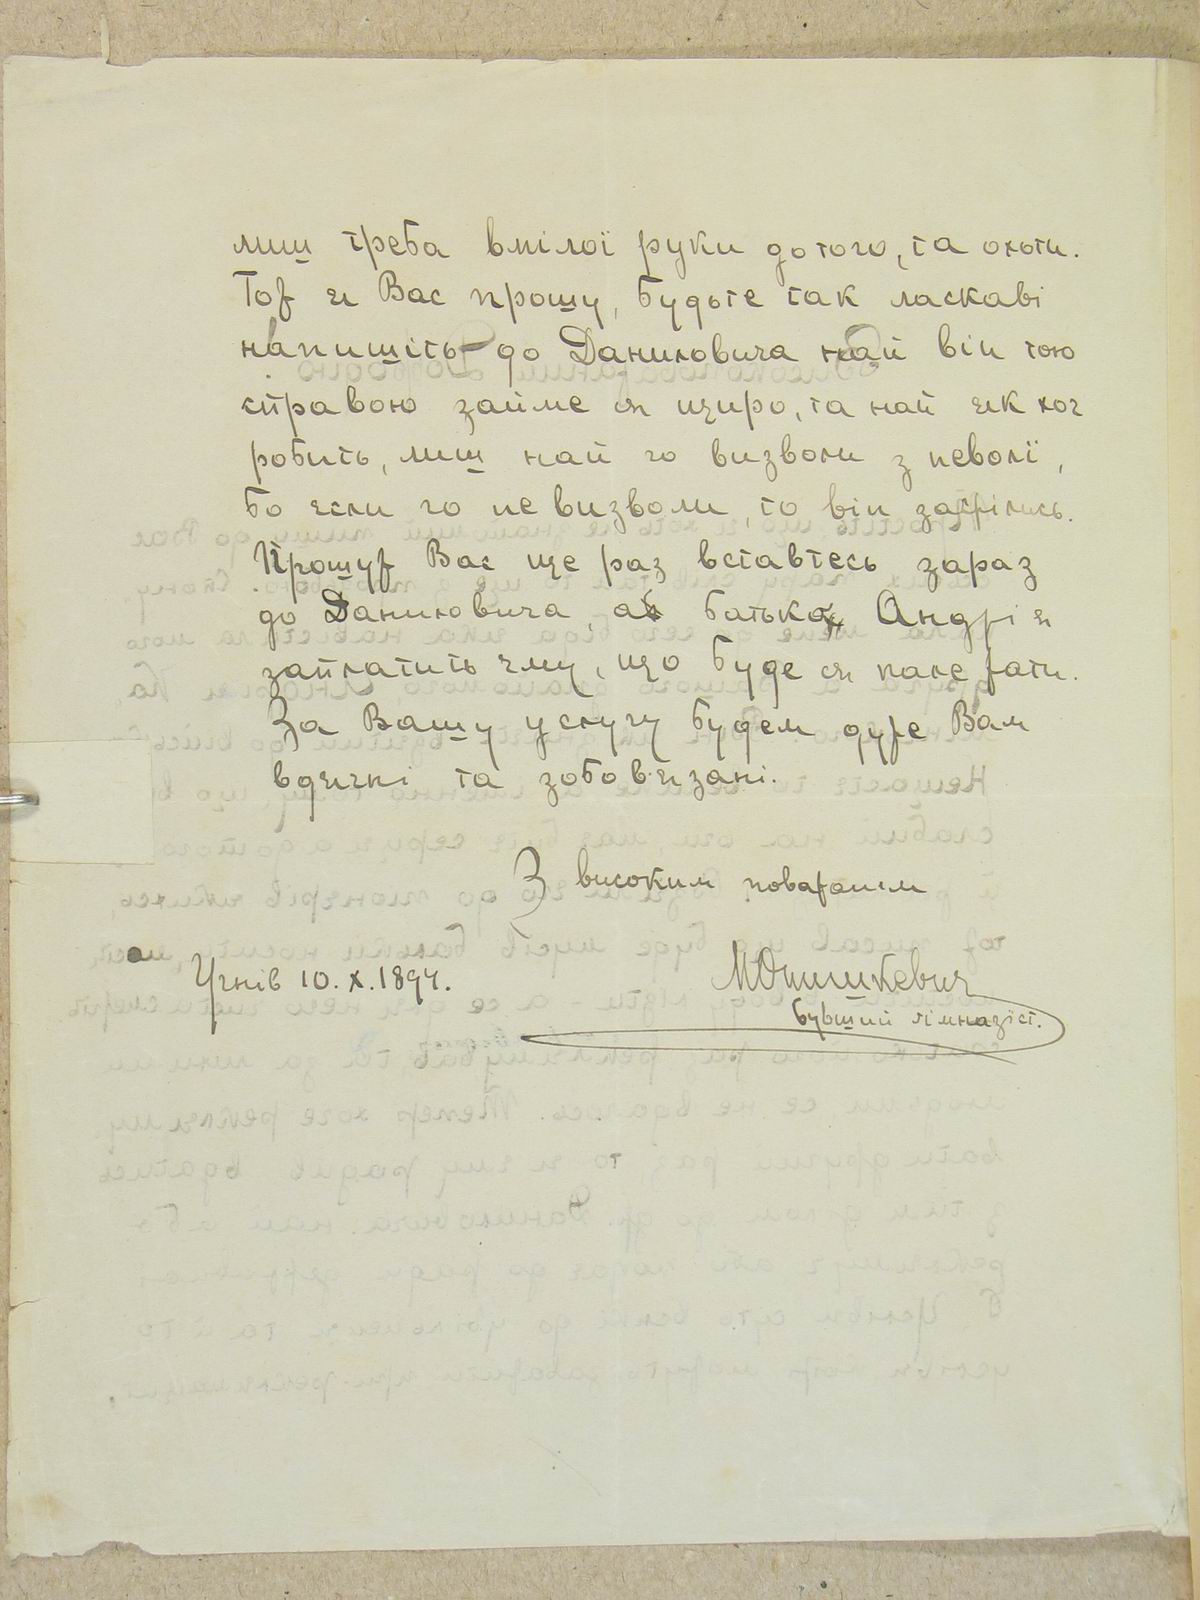 лиш треба вмілої руки до того, та охоти.
Тож я Вас прошу, будьте так ласкаві
напишіть до Даниловича най він тою
справою займе ся щиро, та най як хоч
робить, лиш най го визволи з неволї,
бо если го не визволи, то він
Прошуж Вас ще раз вставтесь зараз
до Даниловича, а батько Андрія
заплатить єму, що буде ся належати.
За Вашу услугу будем дуже Вам
вдячні та зобовязані.
З високим поважанєм
Угнів 10. X. 1894.
бувший гімназіст.